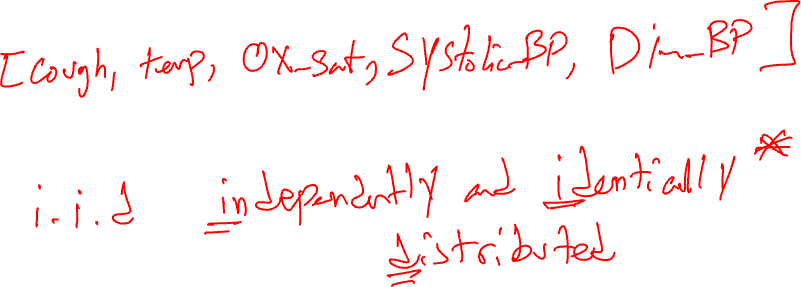 [cough, temp, OX_sat, Systolic_BP, Dia_BP]
i.i.d independently and identically *
distributed